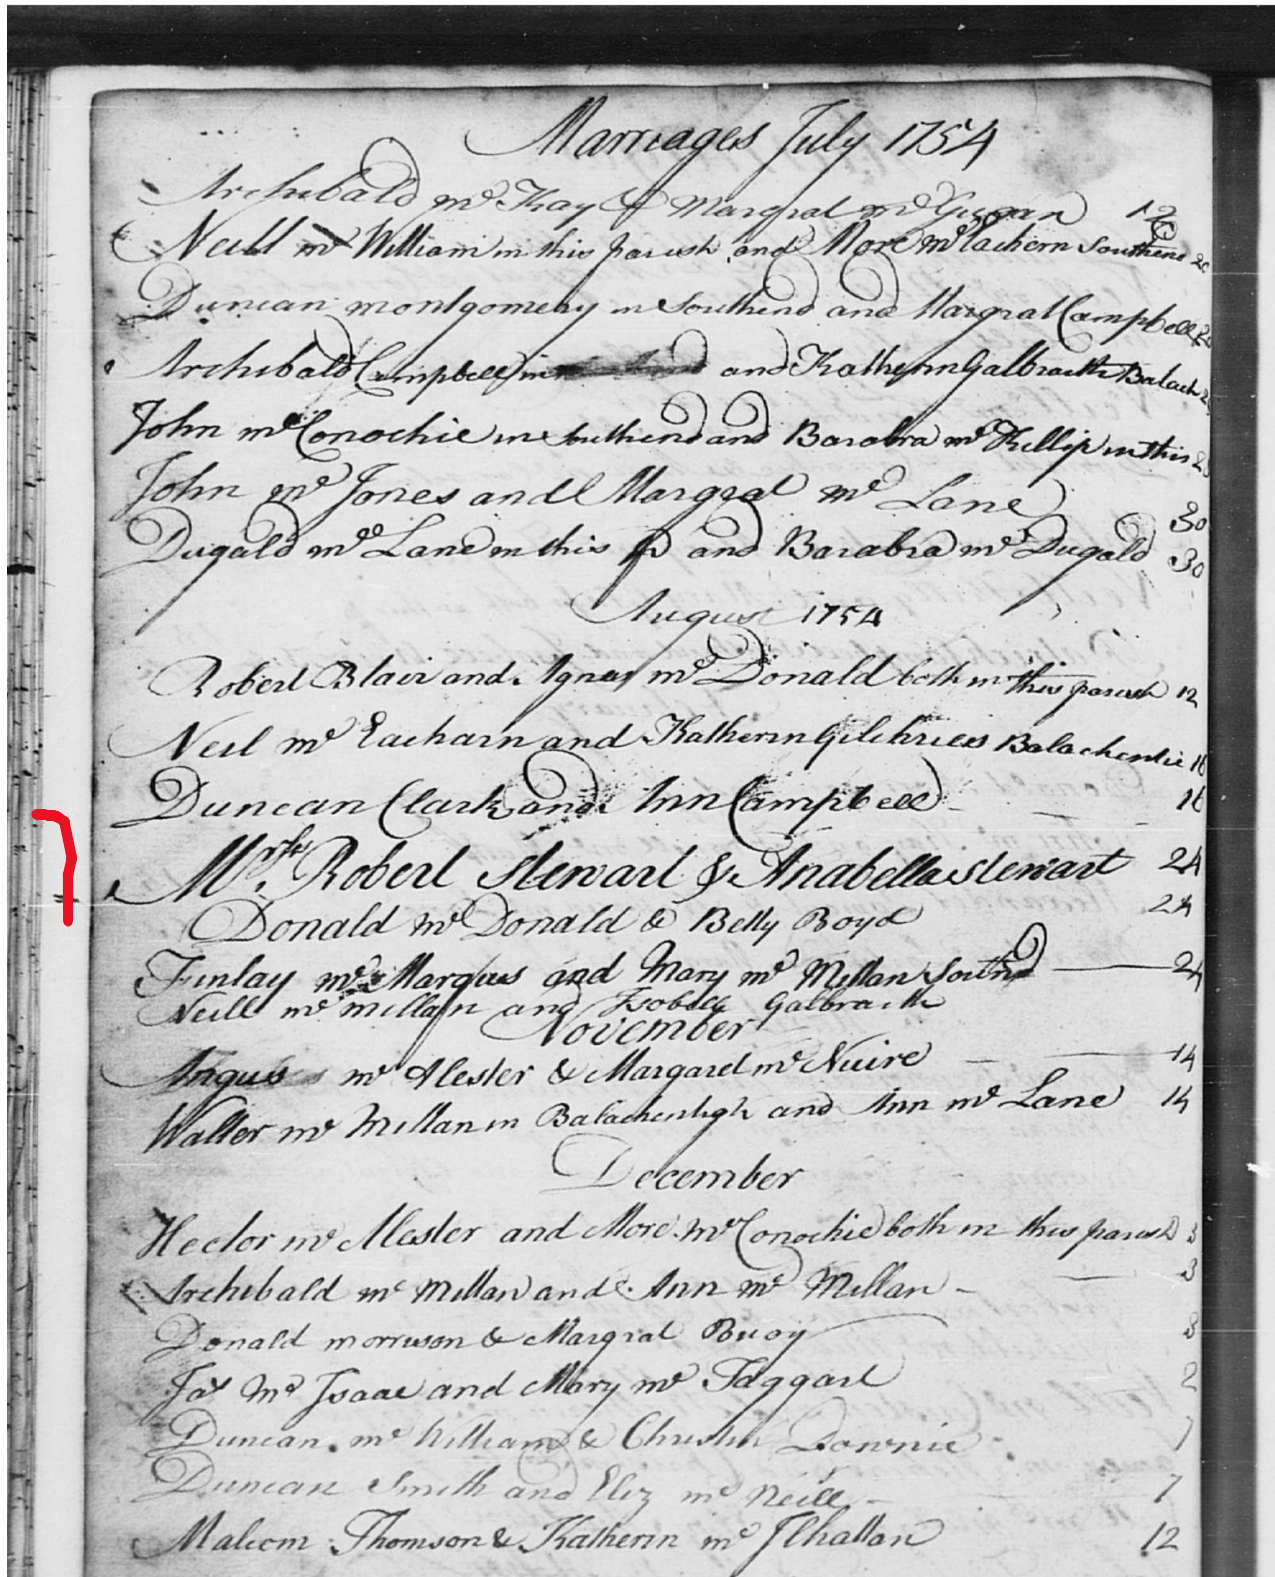 Marriages July 1754
Archibald mc Kay & Margrat mc Gugan 12
Neill mc William in this parish and More mc Eachern Southend 20
Duncan montgomery in Southend and Margrat Campbell
Archibald Campbell in and Katherin Galbraith Balach
John mc Conochie in Southend and Barabra mc Killip in this
John mc Jones and Margrat mc Lane 30
Dugald mc Lane in this p and Barabra mc Dugald 30
August 1754
Robert Blair and Agnes mc Donald both in this parish 12
Neil mc Eacharn and Katherin Gilchries Balachentie 16
Duncan Clark and Ann Campbell 16
Mr. Robert Stewart & Anabella Stewart 24
Donald mc Donald & Betty Boyd 24
Finlay mc Marqus and Mary mc Millan Southd 24
Neill mc millan and Isobell Galbraith
November
Angus mc Alester & Margaret mc Nuire 14
Walter mc Millan in and Ann mc Lane 14
December
Hector mc Alester and More mc Conochie both in this parish 3
Archibald mc Millan and Ann mc Millan 3
Donald morrison & Margrat Buoy 3
Jas Mc Isaac and Mary mc Taggart 2
Duncan mc William & Christin Downie 7
Duncan Smith and Eliz mc Neill 7
Malcom Thomson & Katherin mc Ilhattan 12